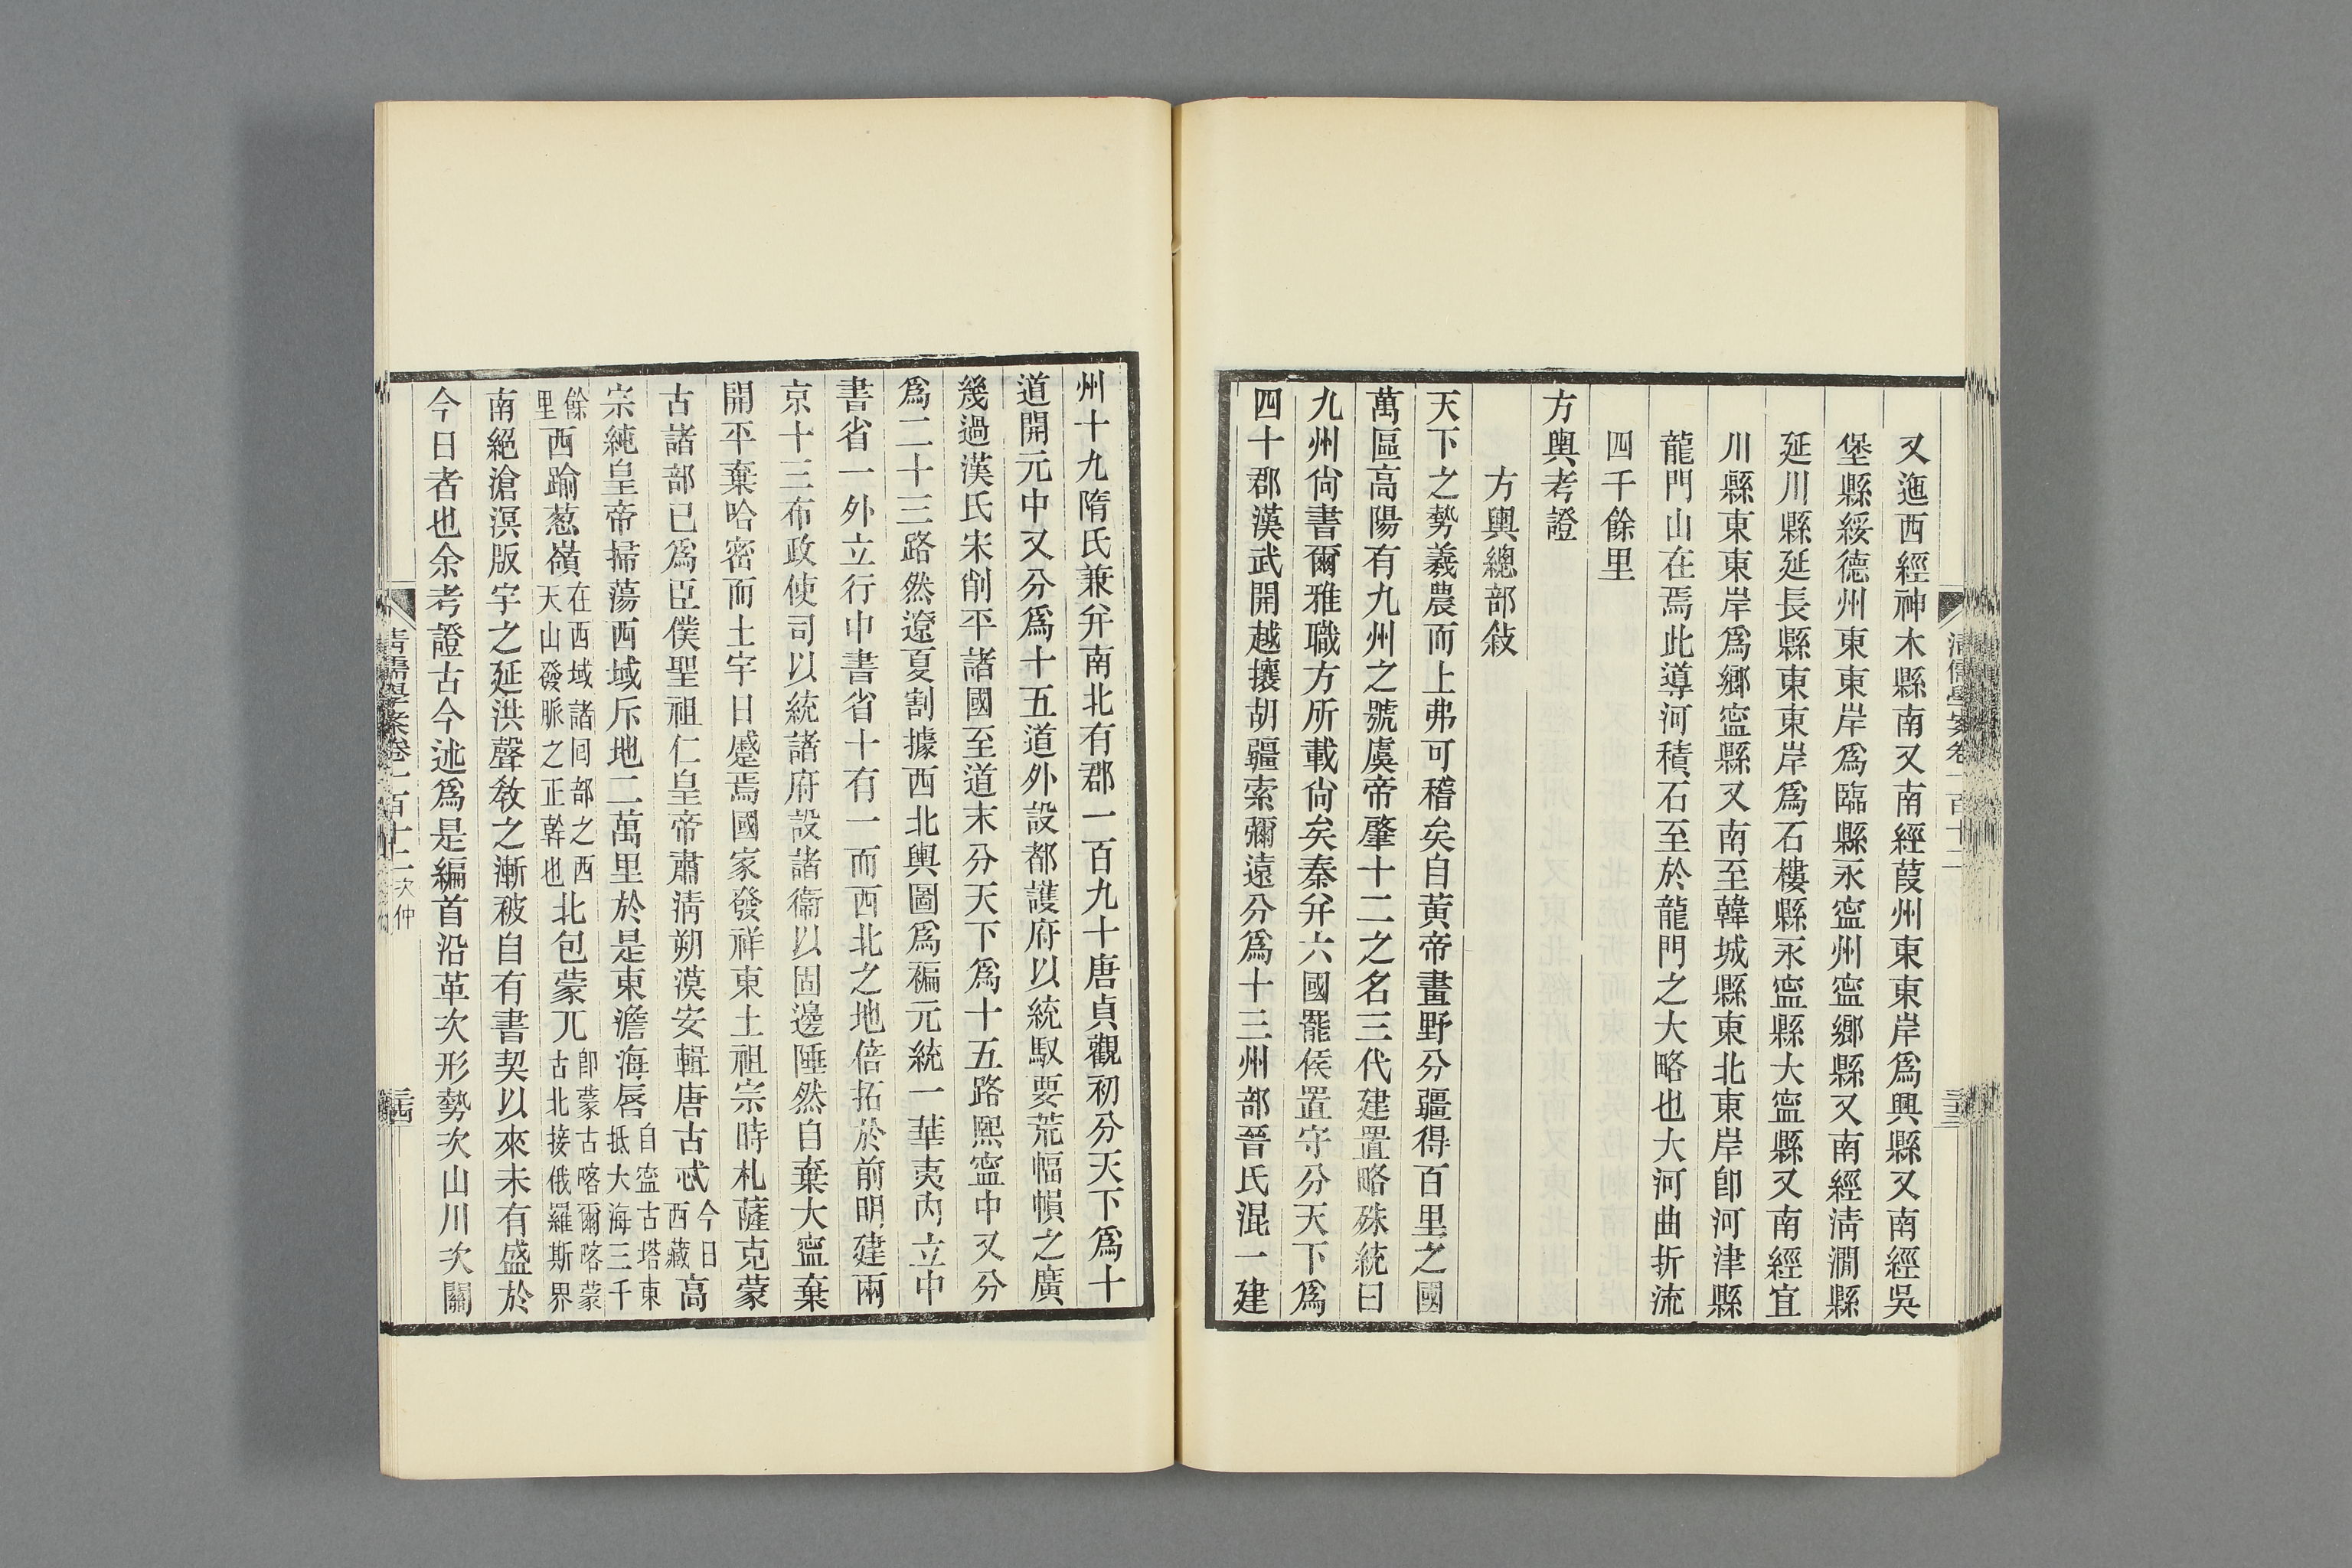 又迤西經神木縣南又南經葭州東東岸爲興縣又南經吳
堡縣綏德州東東岸爲臨縣永寍州寍鄉縣又南經淸澗縣
延川縣延長縣東東岸爲石樓縣永寍縣大寍縣又南經宜
川縣東東岸爲鄉寍縣又南至韓城縣東北東岸卽河津縣
龍門山在焉此導河積石至於龍門之大略也大河曲折流
四千餘里
方輿考證
方輿總部敍
天下之勢羲農而上弗可稽矣自黃帝畫野分疆得百里之國
萬區高陽有九州之號虞帝肇十二之名三代建置略殊統曰
九州尙書爾雅職方所載尙矣秦幷六國罷侯置守分天下爲
四十郡漢武開越攘胡疆索彌遠分爲十三州部晉氏混一建
州十九隋氏兼幷南北有郡一百九十唐貞觀初分天下爲十
道開元中又分爲十五道外設都護府以統馭要荒幅幀之廣
幾過漢氏宋削平諸國至道末分天下爲十五路熙寍中又分
爲二十三路然遼夏割據西北輿圖爲褊元統一華夷內立中
書省一外立行中書省十有一而西北之地倍拓於前明建兩
京十三布政使司以統諸府設諸衞以固邊陲然自棄大寍棄
開平棄哈密而土宇日蹙焉國家發祥東土祖宗時札薩克蒙
古諸部已爲臣僕聖祖仁皇帝肅淸朔漠安輯唐古忒今日西藏高
宗純皇帝掃蕩西域斥地二萬里於是東澹海脣自寍古塔東抵大海三千
餘里西踰葱嶺在西域諸囘部之西天山發脈之正幹也北包蒙兀卽蒙古喀爾喀蒙古北接俄羅斯界
南絕滄溟版宇之延洪聲敎之漸被自有書契以來未有盛於
今日者也余考證古今述爲是編首沿革次形勢次山川次關
淸儒學案卷一百十二
三十三
淸儒學案卷一百十二 次仲
三十四